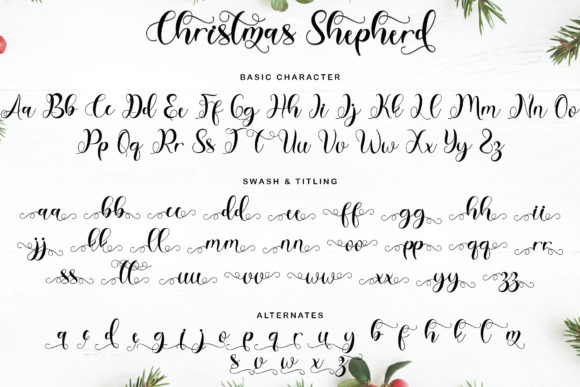 Christmas Shepherd
BASIC CHARACTER
Aa Bb Cc Dd Ee Ff Gg Hh Ii Jj Kk Ll Mm Nn Oo
Pp Qq Rr Ss T t Uu Vv Ww Xx Yy Zz
SWASH & TITLING
aa bb cc dd ee ff gg hh ii
jj kk ll mm nn oo pp qq rr
ss tt uu vv ww xx yy zz
ALTERNATES
a c d e g i j o p q r u y b f h k l m
s v w x z